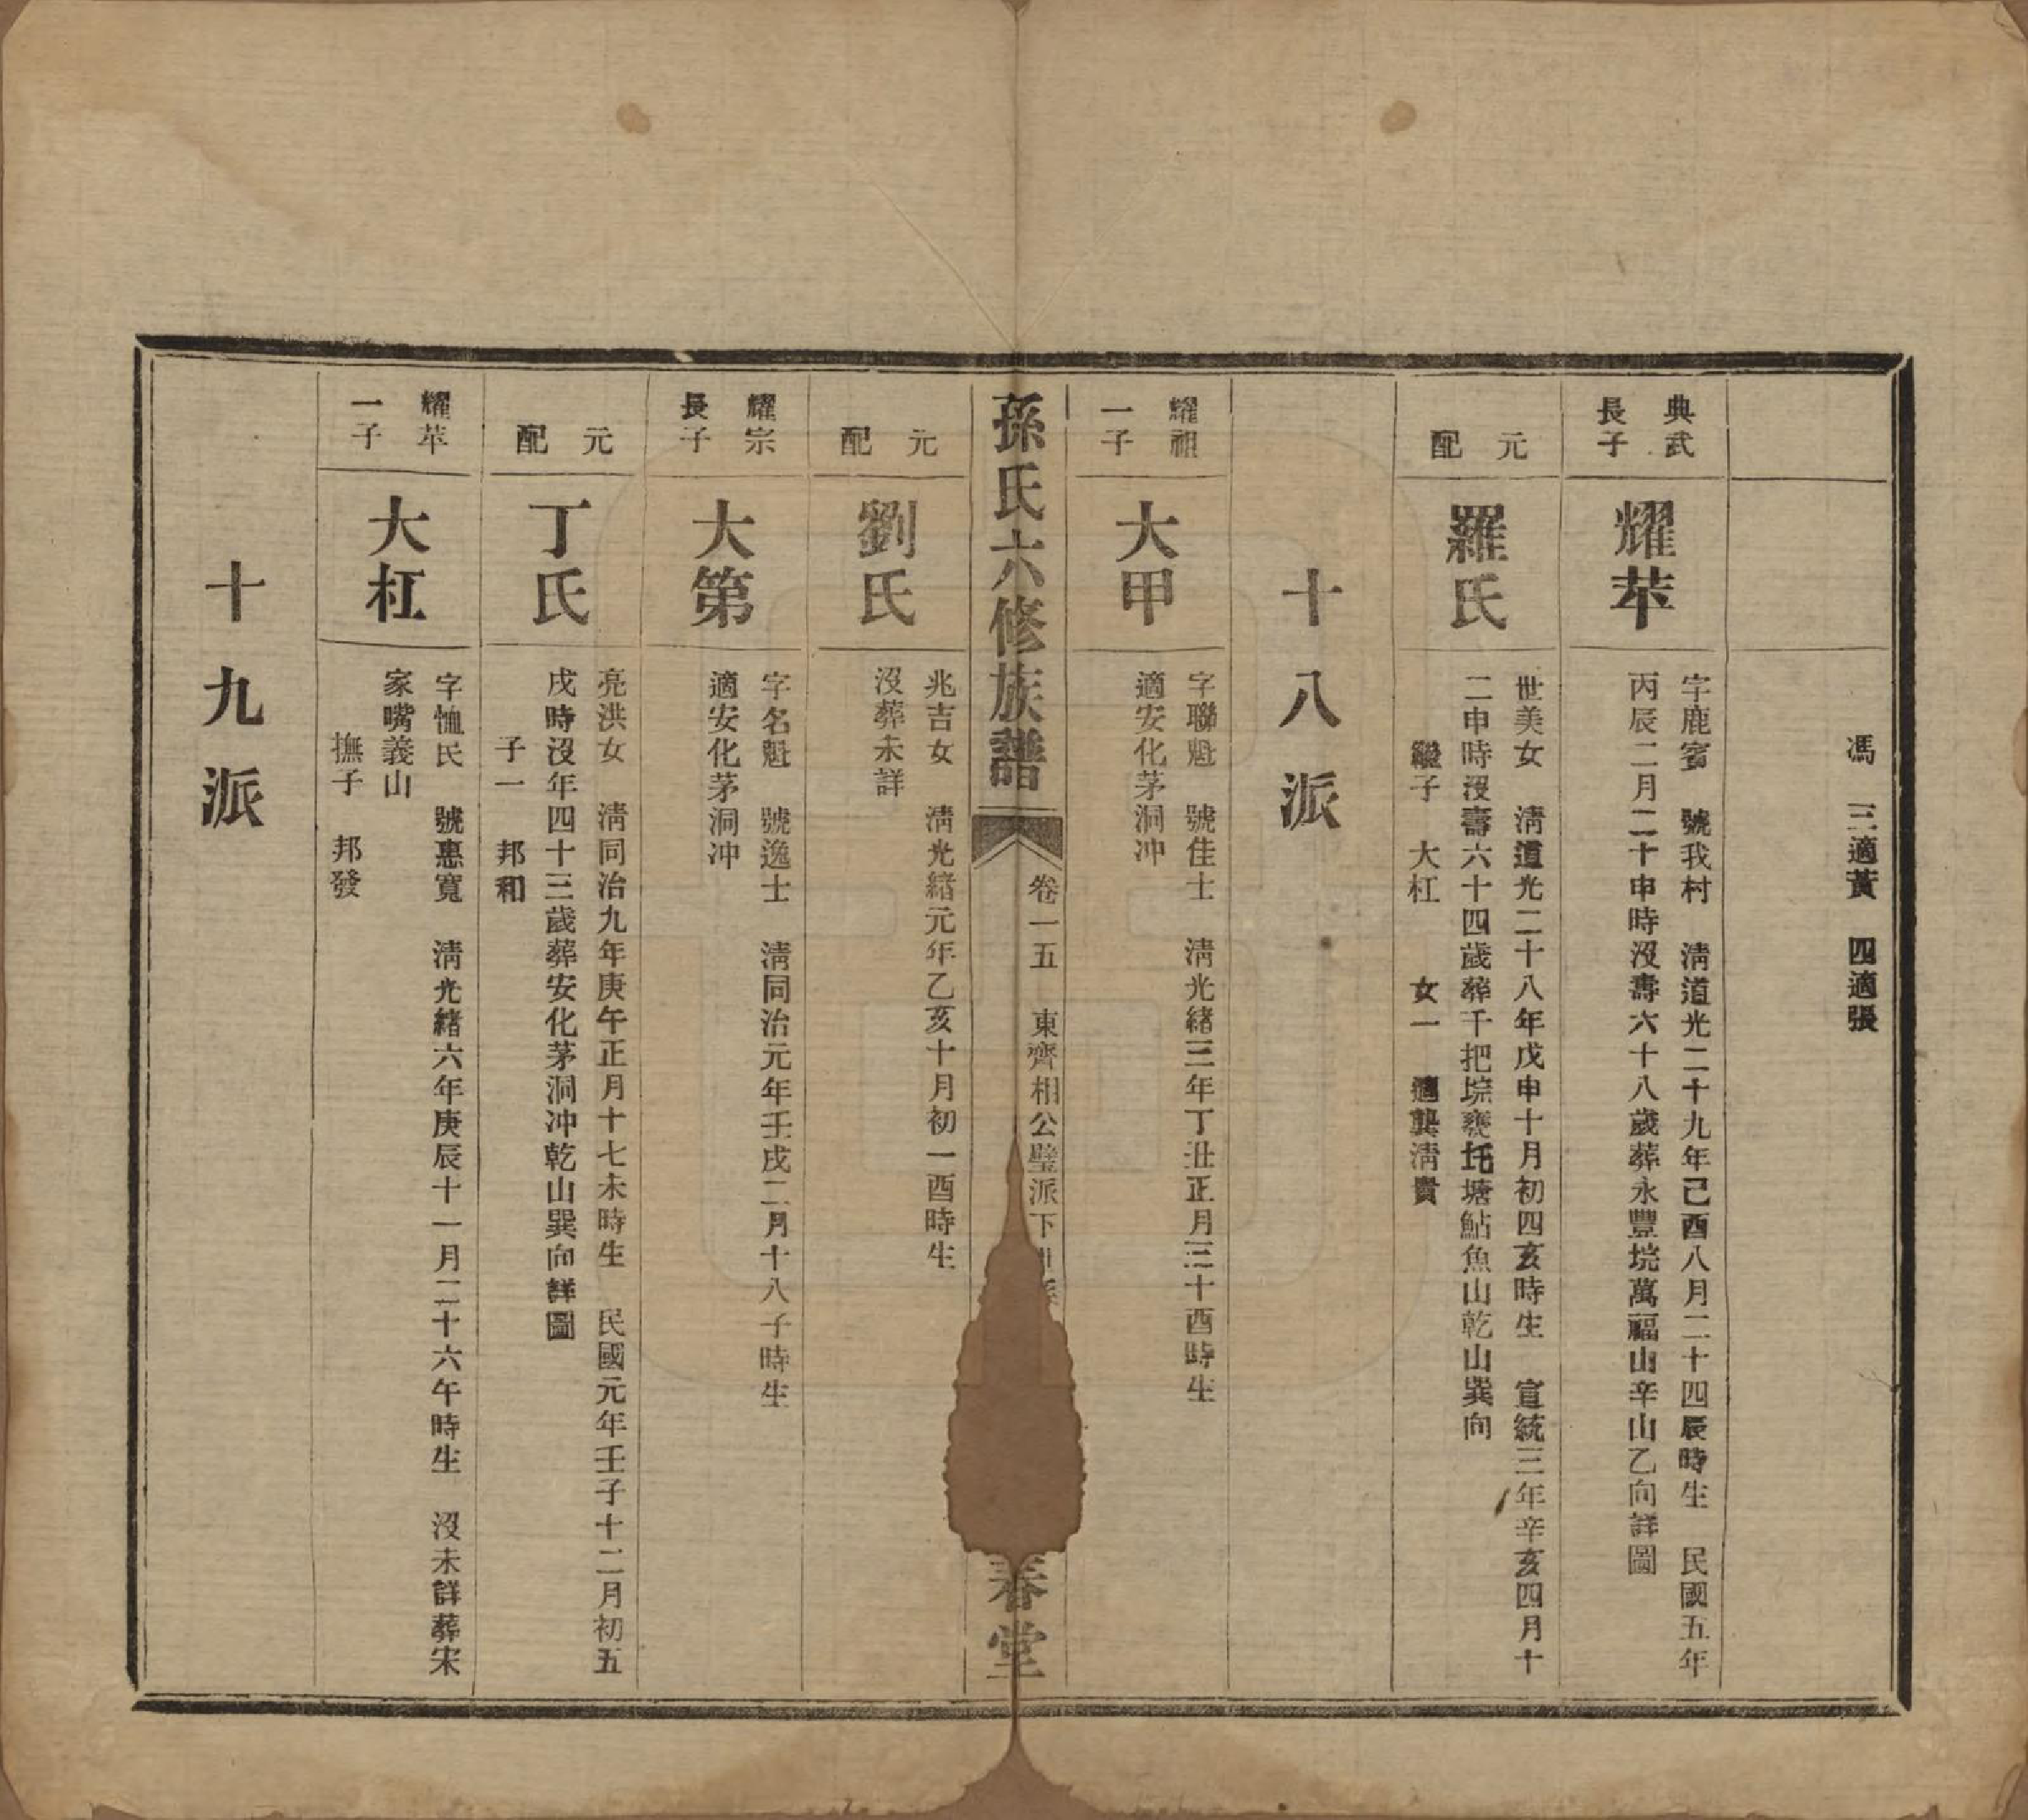 馮　三適黃　四適張
典武
長子
耀苹
字鹿賓　號我村　清道光二十九年己酉八月二十四辰時生　民國五年
丙辰二月二十申時沒壽六十八歲葬永豐垸萬福山辛山乙向詳圖
元配
羅氏
世美女　清道光二十八年戊申十月初四亥時生　宣統三年辛亥四月十
二申時沒壽六十四歲葬千把垸甕𡉏塘鮎魚山乾山巽向
繼子　大杠　　女一　適龔清貴
十八派
耀祖
一子
大甲
字聯魁　號佳士　清光緒三年丁丑正月三十酉時生
適安化茅洞冲
孫氏六修族譜
卷一五　東齊相公璧派下
春堂
元配
劉氏
兆吉女　清光緒元年乙亥十月初一酉時生
沒葬未詳
耀宗
長子
大第
字名魁　號逸士　清同治元年壬戌二月十八子時生
適安化茅洞冲
元配
丁氏
亮洪女　清同治九年庚午正月十七未時生　民國元年壬子十二月初五
戌時沒年四十三歲葬安化茅洞冲乾山巽向詳圖
子一　邦和
耀苹
一子
大杠
字恤民　號惠寬　清光緒六年庚辰十一月二十六午時生　沒未詳葬宋
家嘴義山
撫子　邦發
十九派